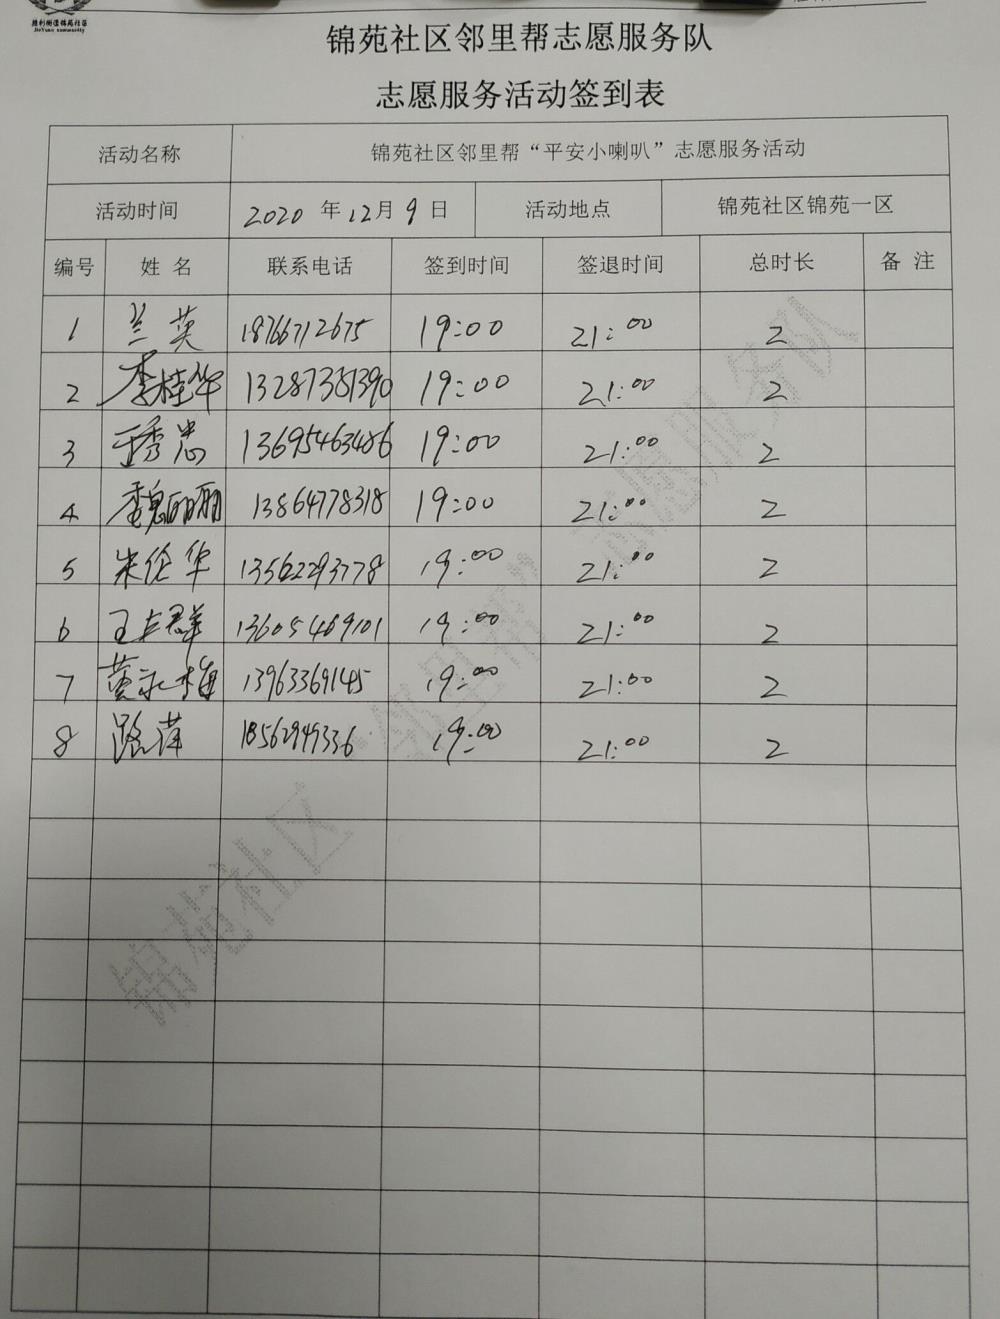 胜利街道锦苑社区
JinYuan community
锦苑社区邻里帮志愿服务队
志愿服务活动签到表
活动名称 锦苑社区邻里帮“平安小喇叭”志愿服务活动
活动时间 2020 年 12月 9 日 活动地点 锦苑社区锦苑一区
编号 姓 名 联系电话 签到时间 签退时间 总时长 备 注
1 兰英 18766712675 19:00 21:00 2
2 李桂华 13287381390 19:00 21:00 2
3 王秀忠 13695463486 19:00 21:00 2
4 魏丽丽 13864778318 19:00 21:00 2
5 朱伦华 13562293778 19:00 21:00 2
6 王卓群 13605469101 19:00 21:00 2
7 董永梅 13963369145 19:00 21:00 2
8 路萍 18562949336 19:00 21:00 2
锦苑社区“邻里帮”志愿服务队